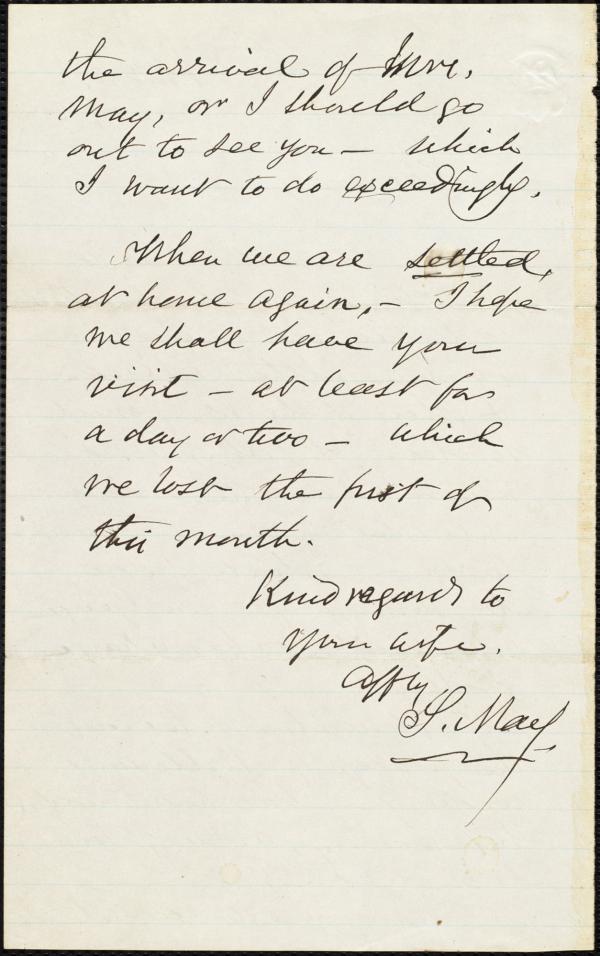 the arrival of Mrs.
May, or I should go
out to see you — which
I want to do exceedingly.
When we are settled,
at home again, — I hope
we shall have your
visit — at least for
a day or two — which
we lost the first of
this month.
Kind regards to
your wife.
Affly
S. May